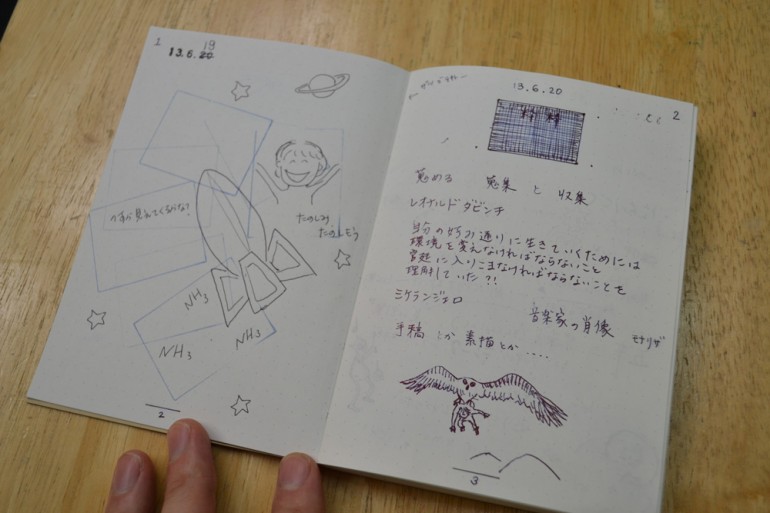 1
19
13.6.20
たのしみ
たのしそう
NH3
NH3
NH3
2
13.6.20
2
蒐める 蒐集 と 収集
レオナルド ダビンチ
自分の好み通りに生きていくためには
環境を変えなければならないこと
宮廷に入りこまなければならないことを
理解していた?!
ミケランジェロ
音楽家の肖像 モナリザ
手稿 とか 素描 とか ....
3